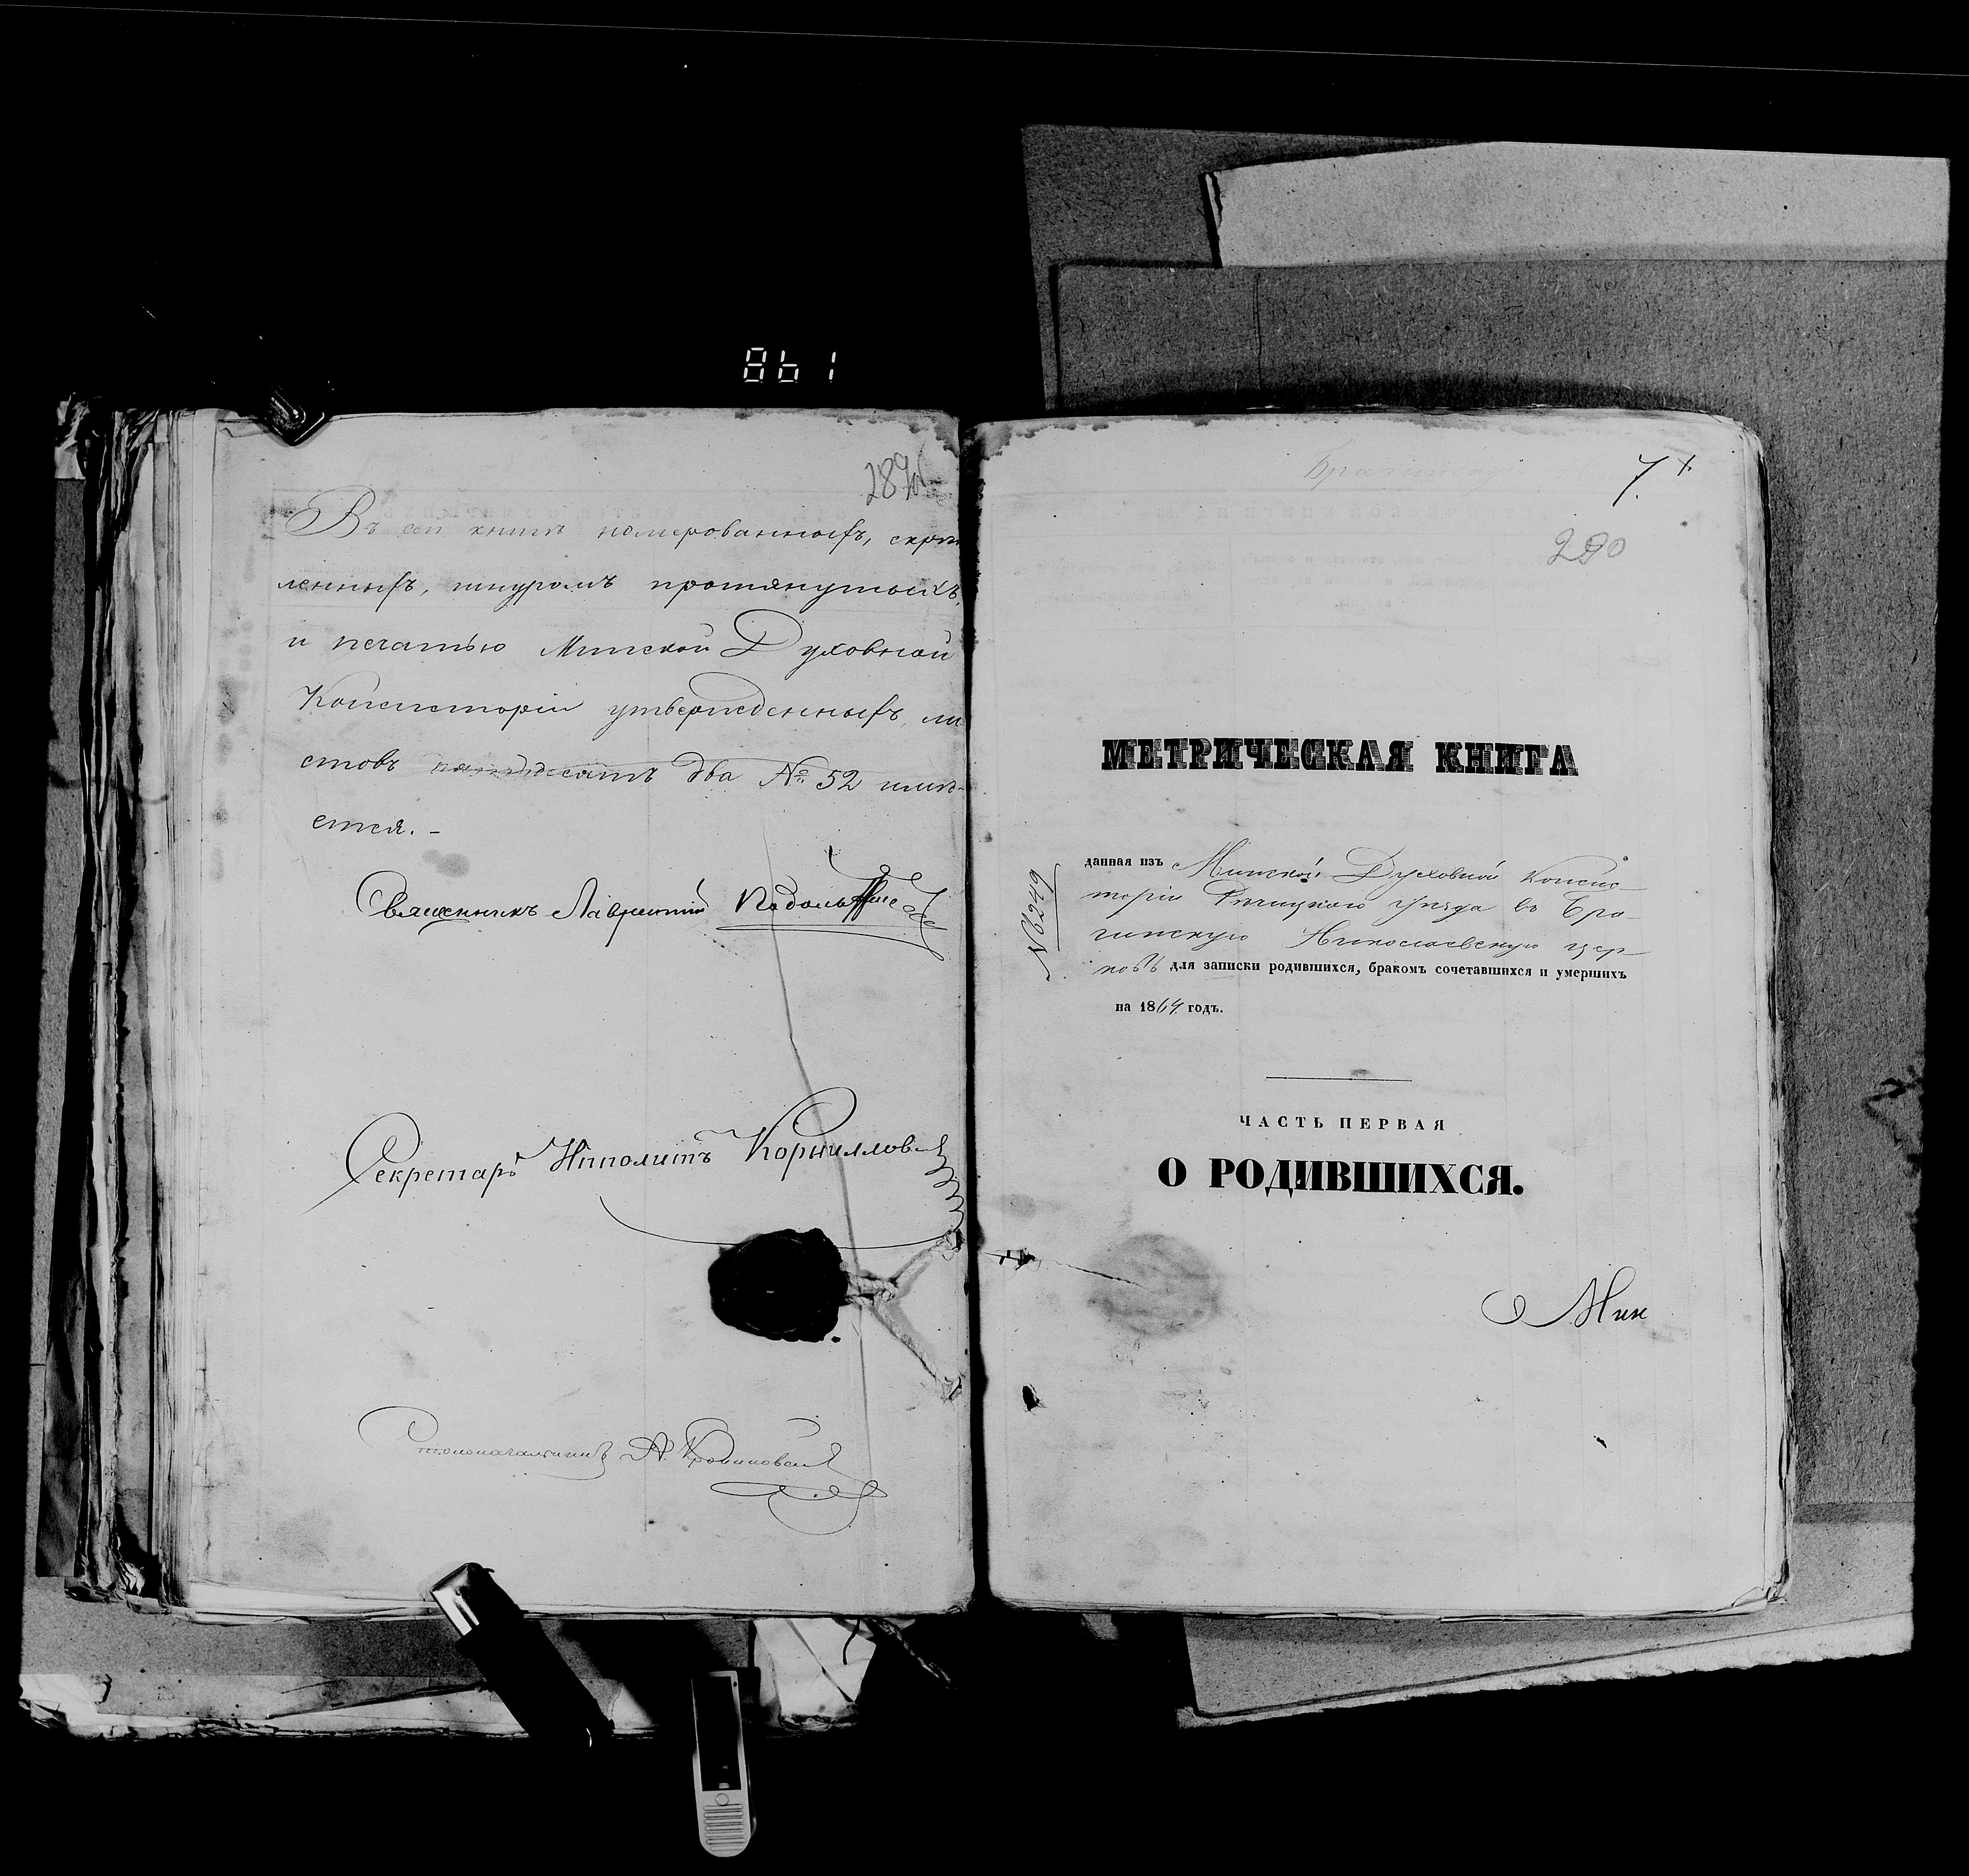 861
289об
Въ сей книгѣ номерованныхъ, скрѣп
ленныхъ, шнуромъ протянутыхъ,
и печатью Минской Духовной
Консисторіи утвержденныхъ, ли
стовъ пятьдесятъ два № 52 имѣ-
ется. -
Священникъ Лаврентій
Секретарь Ипполитъ Корнилловъ
Столоначальникъ А.
Брагинскую
7
290
МЕТРИЧЕСКАЯ КНИГА
№ 6249
данная изъ Минской Духовной Консис-
торіи Рѣчицкого уѣзда въ Бра-
гинскую Николаевскую цер-
ковь для записки родившихся, бракомъ сочетавшихся и умершихъ
на 1864 годъ.
ЧАСТЬ ПЕРВАЯ
О РОДИВШИХСЯ.
Мин